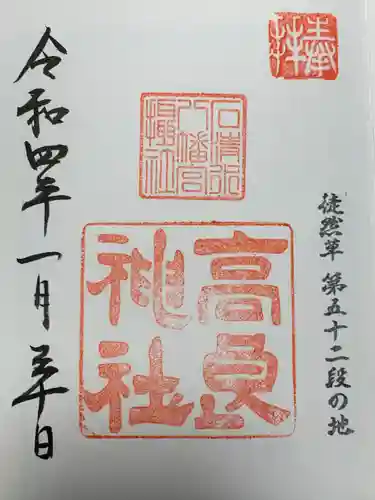 奉拝
徒然草 第五十二段の地
石清水
八幡宮
摂社
高良
神社
令和四年一月二十日